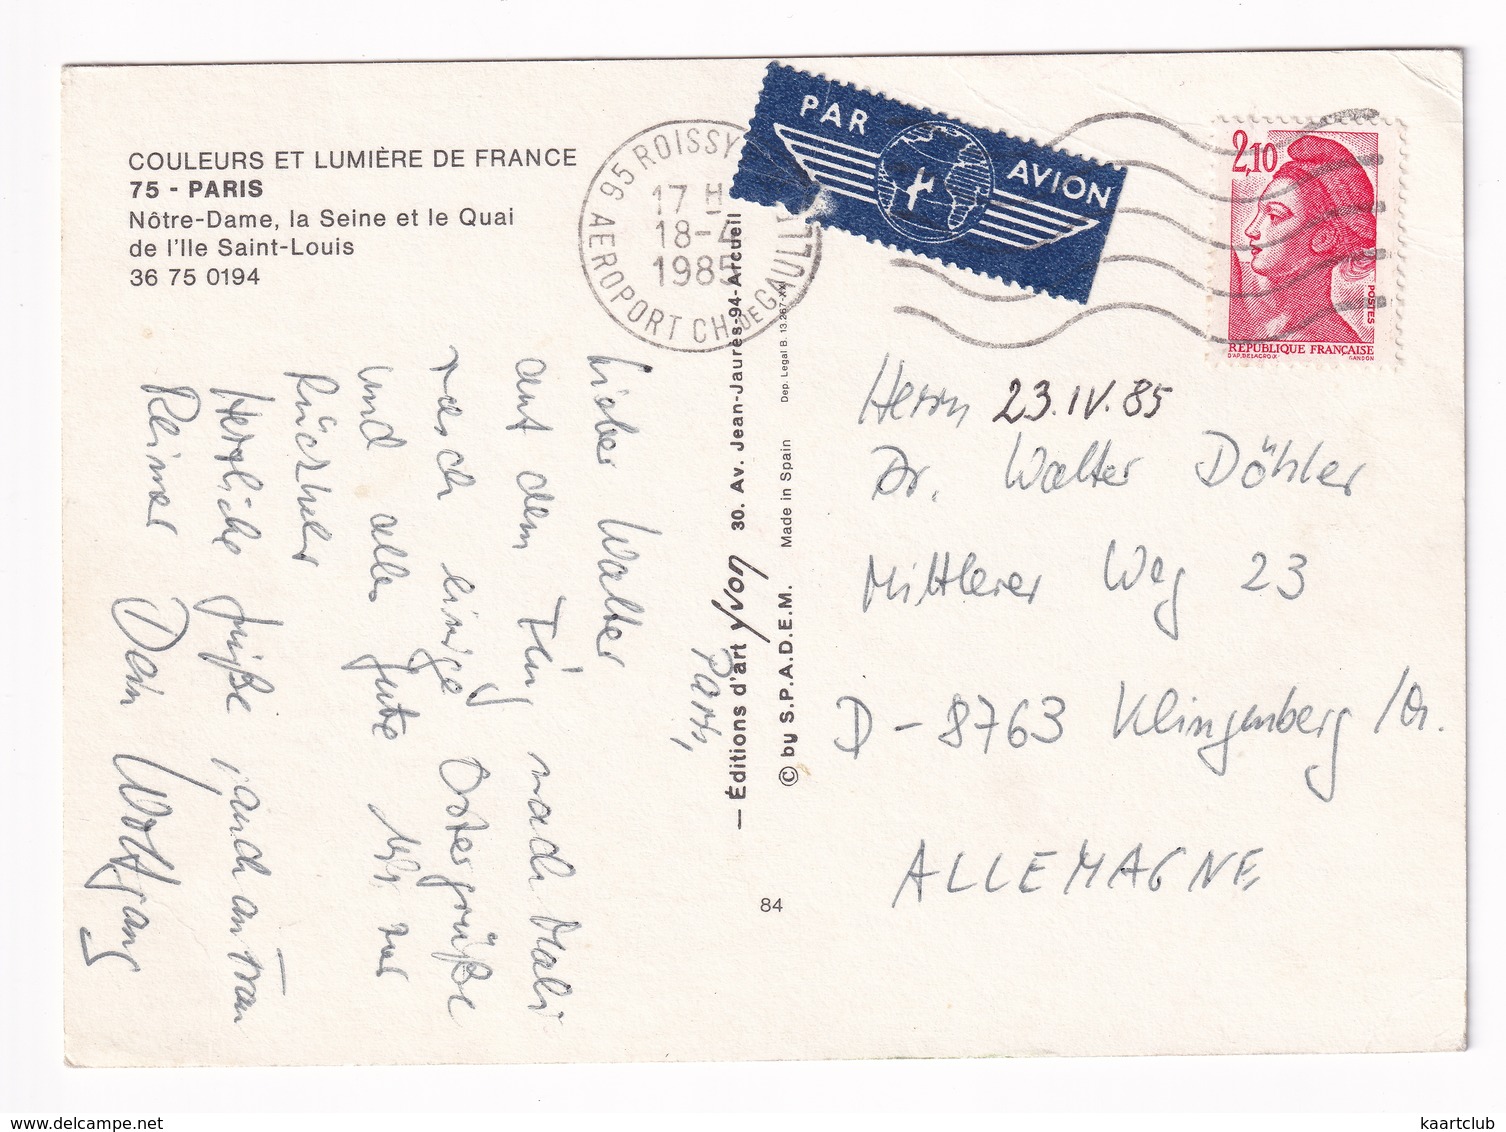 COULEURS ET LUMIÈRE DE FRANCE
75 - PARIS
Nôtre-Dame, la Seine et le Quai
de l'Ile Saint-Louis
36 75 0194
95 ROISSY
17 H
18-4
1985
AEROPORT CH. DE GAULLE
PAR AVION
2,10
POSTES
RÉPUBLIQUE FRANÇAISE
D'AP. DELACROIX GANDON
Paris,
Lieber Walter
auf dem Flug nach Mali
rasch einige Ostergrüße
und alles Gute Dir zur
Herzliche Grüße, auch an Frau
Dein Wolfgang
— Éditions d'art yvon 30. Av. Jean-Jaurès-94-Arcueil
© by S.P.A.D.E.M. Made in Spain Dep. Legal B. 13.267-XX
84
Herrn 23.IV.85
Dr. Walter Döhler
Mittlerer Weg 23
D-8763 Klingenberg
ALLEMAGNE
delcampe.net
kaartclub